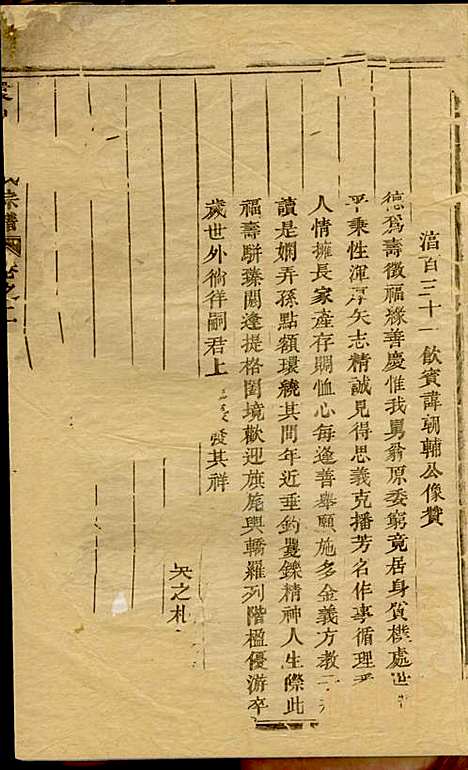 湻百三十一飲賓諱朝輔公像贊
德爲壽徵福緣善慶惟我舅翁原委窮竟居身質樸處世
平乗性渾厚矢志精誠見得思義克播芳名作事循理
人情擁長家產存賙恤心每逢善舉願施多金義方教子
讀是嫻弄孫點額環繞其間年近垂釣矍鑠精神人生際此
福壽駢臻關逢提格閭境歡迎旗旄輿轎羅列階楹優游卒
歲世外徜徉嗣君上 爰其祥
矢之札
宗譜 卷之二